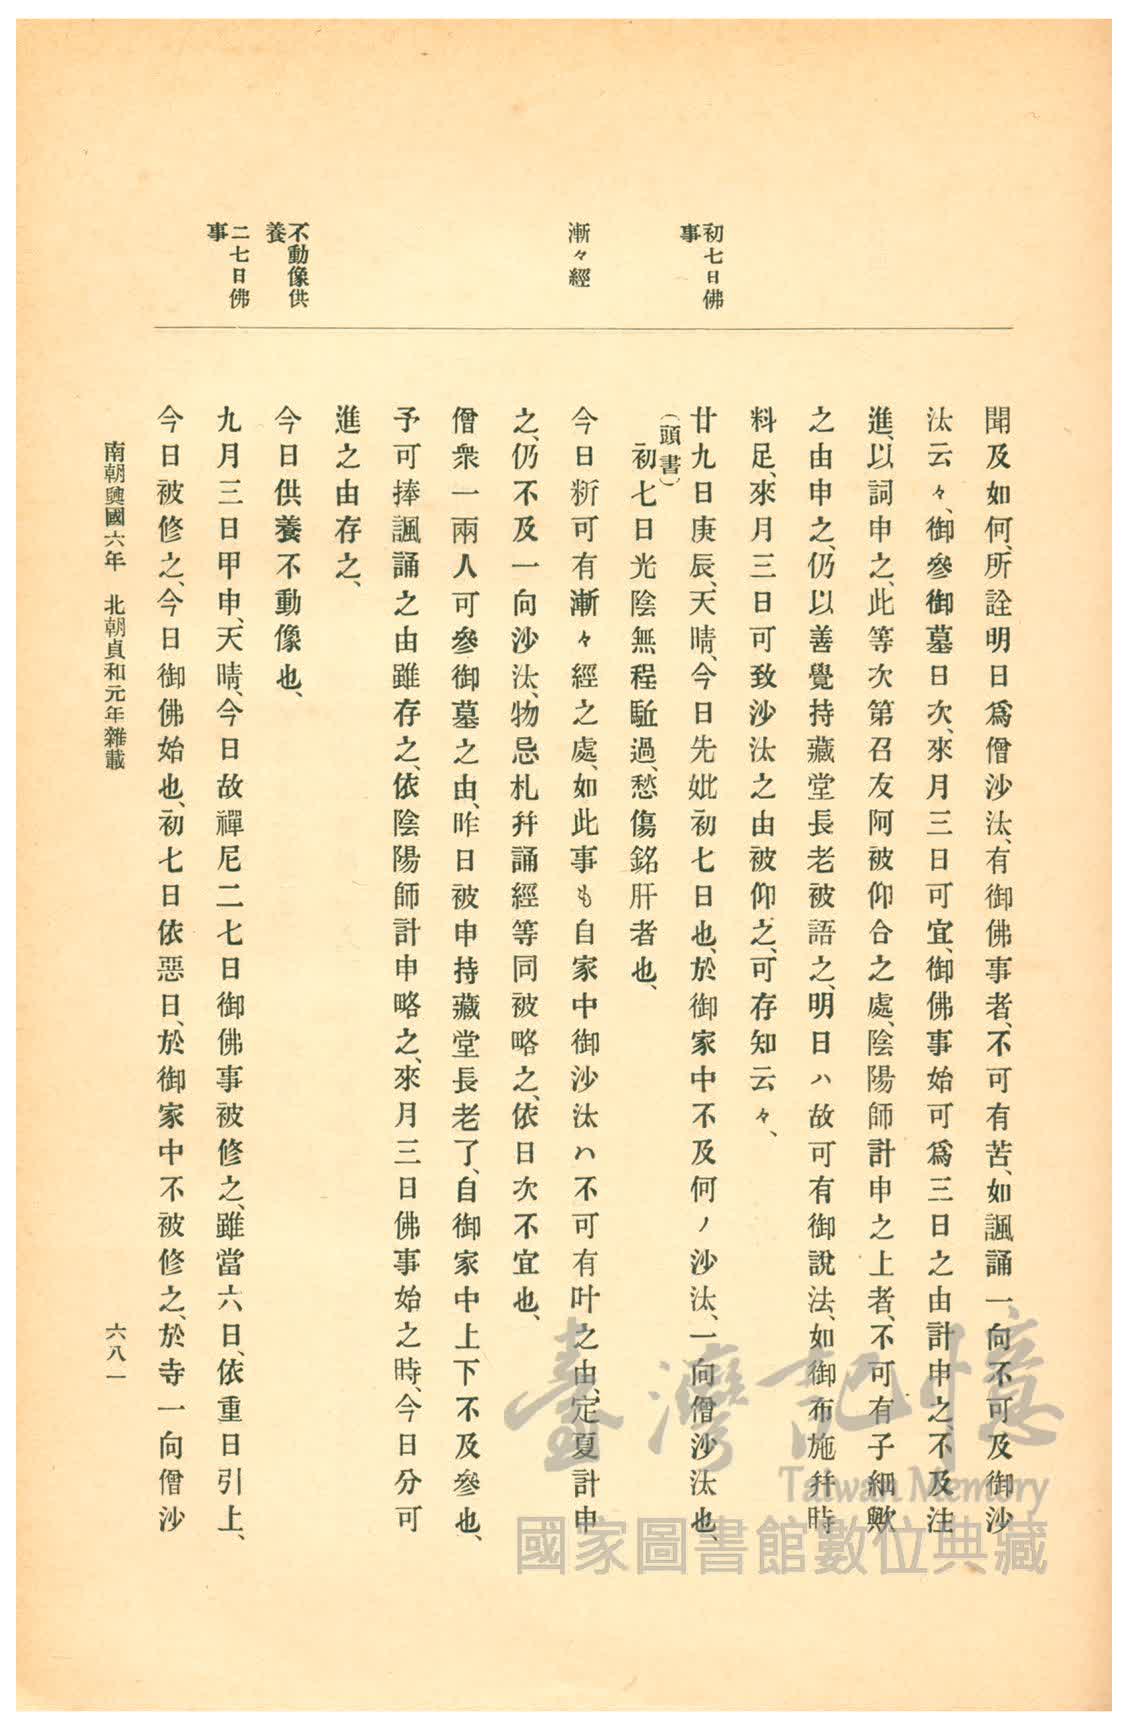 初七日佛
事
漸々經
不動像供
養
二七日佛
事
聞及如何、所詮明日爲僧沙汰、有御佛事者、不可有苦、如諷誦一向不可及御沙
汰云々、御參御墓日次、來月三日可宜、御佛事始可爲三日之由計申之、不及注
進、以詞申之、此等次第召友阿被仰合之處、陰陽師計申之上者、不可有子細歟
之由申之、仍以善覺持藏堂長老被語之、明日ハ故可有御說法、如御布施幷時
料足、來月三日可致沙汰之由被仰之、可存知云々、
廿九日庚辰、天晴、今日先妣初七日也、於御家中不及何ノ沙汰、一向僧沙汰也、
(頭書)
初七日光陰無程駈過、愁傷銘肝者也、
今日新可有漸々經之處、如此事も自家中御沙汰ハ不可有叶之由、定夏計申
之、仍不及一向沙汰、物忌札幷誦經等同被略之、依日次不宜也、
僧衆一兩人可參御墓之由、昨日被申持藏堂長老了、自御家中上下不及參也、
予可捧諷誦之由雖存之、依陰陽師計申略之、來月三日佛事始之時、今日分可
進之由存之、
今日供養不動像也、
九月三日甲申、天晴、今日故禪尼二七日御佛事被修之、雖當六日、依重日引上、
今日被修之、今日御佛始也、初七日依惡日、於御家中不被修之、於寺一向僧沙
南朝興國六年 北朝貞和元年雜載
六八一
臺灣記憶
Taiwan Memory
國家圖書館數位典藏